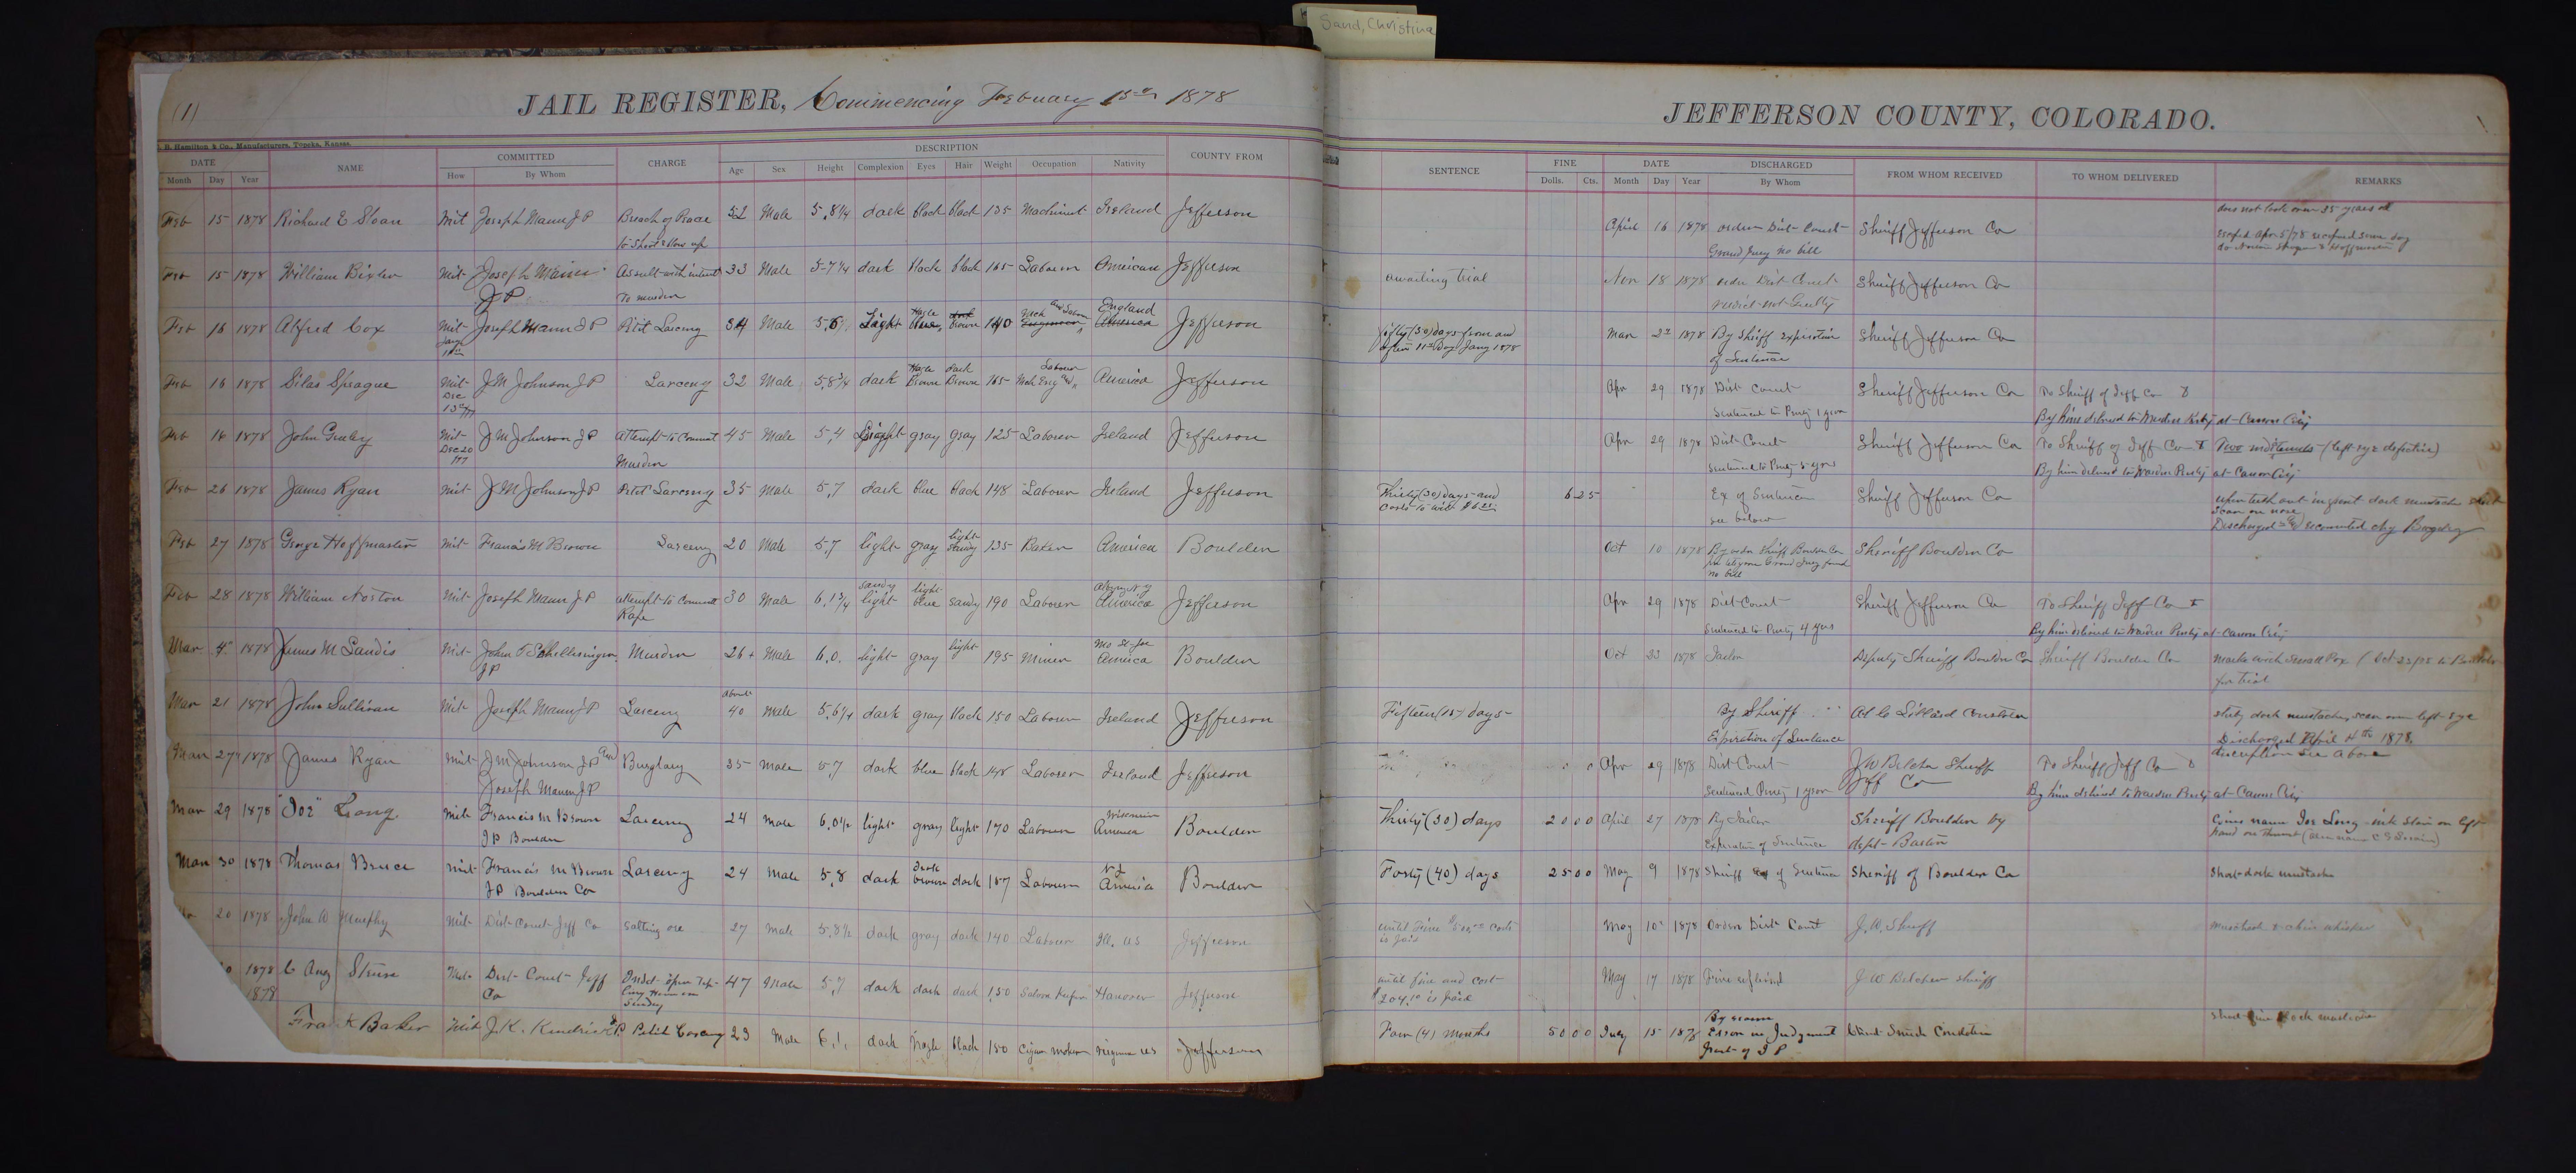 Sand, Christina
(1)
JAIL REGISTER, Commencing February 15th 1878
JEFFERSON COUNTY, COLORADO.
Hamilton & Co., Manufacturers, Topeka, Kansas.
DATE NAME COMMITTED CHARGE DESCRIPTION COUNTY FROM
Month Day Year How By Whom Age Sex Height Complexion Eyes Hair Weight Occupation Nativity
SENTENCE FINE DATE DISCHARGED FROM WHOM RECEIVED TO WHOM DELIVERED REMARKS
Dolls. Cts. Month Day Year By Whom
Feb 15 1878 Richard E Sloan Mit Joseph Mann J P Breach of Peace 52 Male 5,8 1/4 dark black black 135 Machinist Ireland Jefferson
to Shoot & blow up
April 16 1878 order Dist Court Sheriff Jefferson Co does not look over 35 years old
Grand Jury no bill
Feb 15 1878 William Bixler Mit Joseph Mann Assault with intent 33 Male 5-7 1/4 dark black black 165 Laborer American Jefferson
J P To murder
awaiting trial Nov 18 1878 order Dist Court Sheriff Jefferson Co
verdict not Guilty
Feb 16 1878 Alfred Cox Mit Joseph Mann J P Petit Larceny 34 Male 5,6 Light Hazle brown 140 England America Jefferson
Jany
fifty (50) days from and Mar 2nd 1878 By Sheriff expiration Sheriff Jefferson Co
after 11th Day Jany 1878 of Sentence
Feb 16 1878 Silas Sprague Mit J M Johnson J P Larceny 32 Male 5,8 3/4 dark Hazle Brown dark Brown 165 Laborer America Jefferson
Dec
Apr 29 1878 Dist Court Sheriff Jefferson Co To Sheriff of Jeff Co
Sentenced to Penty 1 year By him delivered to Warden at Canon City
Feb 16 1878 John Mit J M Johnson J P Attempt to Commit 45 Male 5,4 Light gray gray 125 Laborer Ireland Jefferson
Dec 20 Murder
Apr 29 1878 Dist Court Sheriff Jefferson Co To Sheriff of Jeff Co (left eye defective)
Sentenced to Penty 5 years By him delivered to Warden Penty at Canon City
Feb 26 1878 James Ryan Mit J M Johnson J P Petit Larceny 35 Male 5,7 dark blue black 148 Laborer Ireland Jefferson
Thirty (30) days and 6 25 Ex of Sentence Sheriff Jefferson Co upper teeth out in front dark mustache
costs to wit $6.25 see below scar on nose
Discharged recommitted chg Burglary
Feb 27 1878 George Hoffmaster Mit Francis M Brown Larceny 20 Male 5,7 light gray light sandy 135 Baker America Boulder
Oct 10 1878 By order Sheriff Boulder Co Sheriff Boulder Co
Grand Jury found
no bill
Feb 28 1878 William Norton Mit Joseph Mann J P attempt to Commit 30 Male 6,1 3/4 sandy light light blue sandy 190 Laborer Albany N Y America Jefferson
Rape
Apr 29 1878 Dist Court Sheriff Jefferson Co To Sheriff Jeff Co
Sentenced to Penty 4 yrs By him delivered to Warden Penty at Canon City
Mar 4 1878 James M Landis Mit John T Murder 26+ Male 6,0. light gray light 195 Miner Mo St Joe America Boulder
J P
Oct 23 1878 Jailor Deputy Sheriff Boulder Co Sheriff Boulder Co Marks with Small Pox
for trial
Mar 21 1878 John Sullivan Mit Joseph Mann J P Larceny about 40 Male 5,6 1/4 dark gray black 150 Laborer Ireland Jefferson
Fifteen (15) days By Sheriff dark mustache, scar over left eye
Expiration of Sentence Discharged April 4th 1878.
Mar 27 1878 James Ryan Mit J M Johnson J P and Burglary 35 Male 5,7 dark blue black 148 Laborer Ireland Jefferson
Joseph Mann J P
Apr 29 1878 Dist Court J W Belcher Sheriff To Sheriff Jeff Co description see above
Sentenced Penty 1 year Jeff Co By him delivered to Warden Penty at Canon City
Mar 29 1878 "Joe" Long Mit Francis M Brown Larceny 24 Male 6,0 1/2 light gray light 170 Laborer Wisconsin America Boulder
J P Boulder
Thirty (30) days 20 00 April 27 1878 By Jailor Sheriff Boulder by Gives name Joe Long ink stain on left
Expiration of Sentence dept Barton hand on thumb
Mar 30 1878 Thomas Bruce Mit Francis M Brown Larceny 24 Male 5,8 dark dark brown dark 187 Laborer N Y America Boulder
J P Boulder Co
Forty (40) days 25 00 May 9 1878 Sheriff ex of Sentence Sheriff of Boulder Co Short dark mustache
20 1878 John W Murphy Mit Dist Court Jeff Co Salting ore 27 Male 5,8 1/2 dark gray dark 140 Laborer Ill. US Jefferson
until Fine costs May 10 1878 Order Dist Court J. W. Sheriff Mustache & chin whisker
is paid
1878 C Aug Struse Mit Dist Court Jeff 47 Male 5,7 dark dark dark 150 Saloon Keeper Hanover Jefferson
Co Sunday
until fine and cost May 17 1878 Fine J W Belcher Sheriff
$204.10 is paid
1878
Frank Baker Mit J. K. Kendrick J P. Petit Larceny 23 Male 6,1, dark hazle black 150 Cigar maker Virginia US Jefferson
Four (4) months 50 00 July 15 1878 By reason Short fine black mustache
Error in Judgment
part of J P